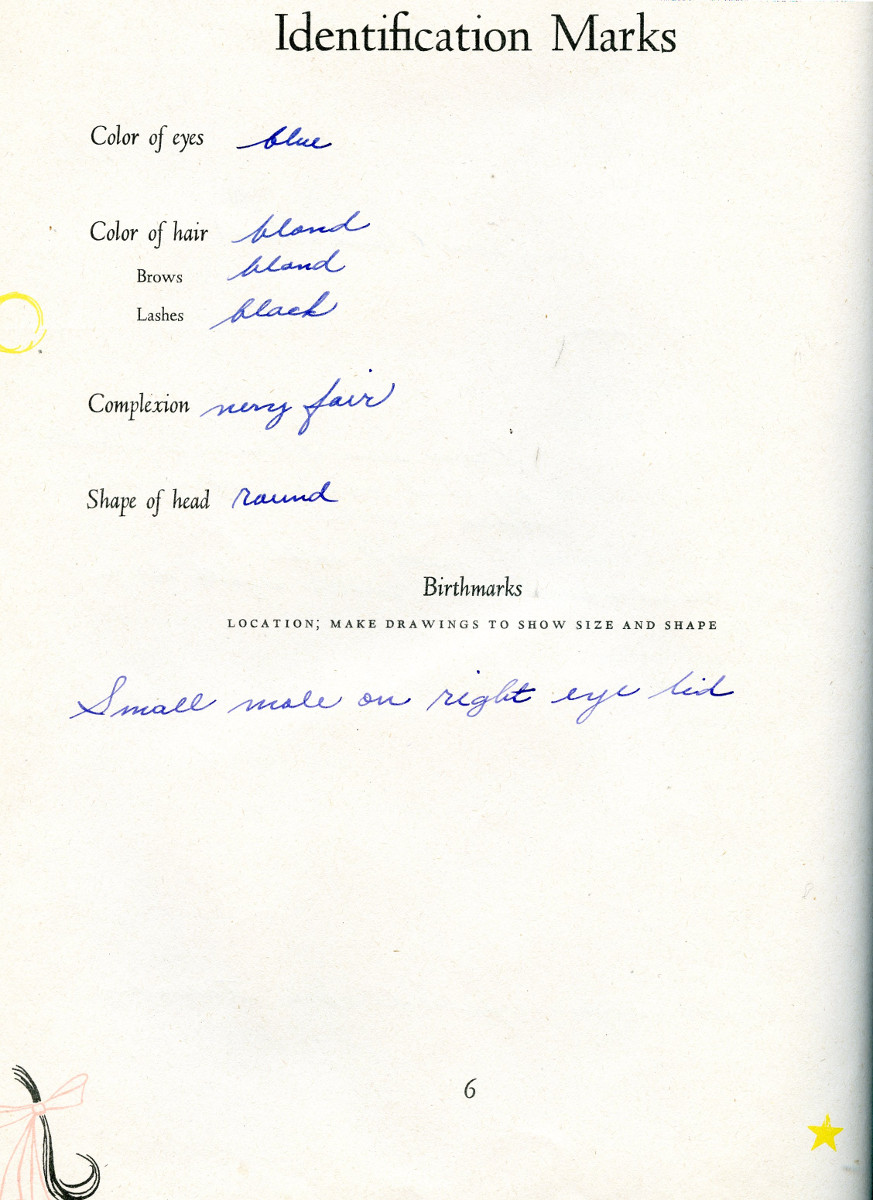 Identification Marks
Color of eyes blue
Color of hair blond
Brows blond
Lashes black
Complexion very fair
Shape of head round
Birthmarks
LOCATION; MAKE DRAWINGS TO SHOW SIZE AND SHAPE
Small mole on right eye lid
6